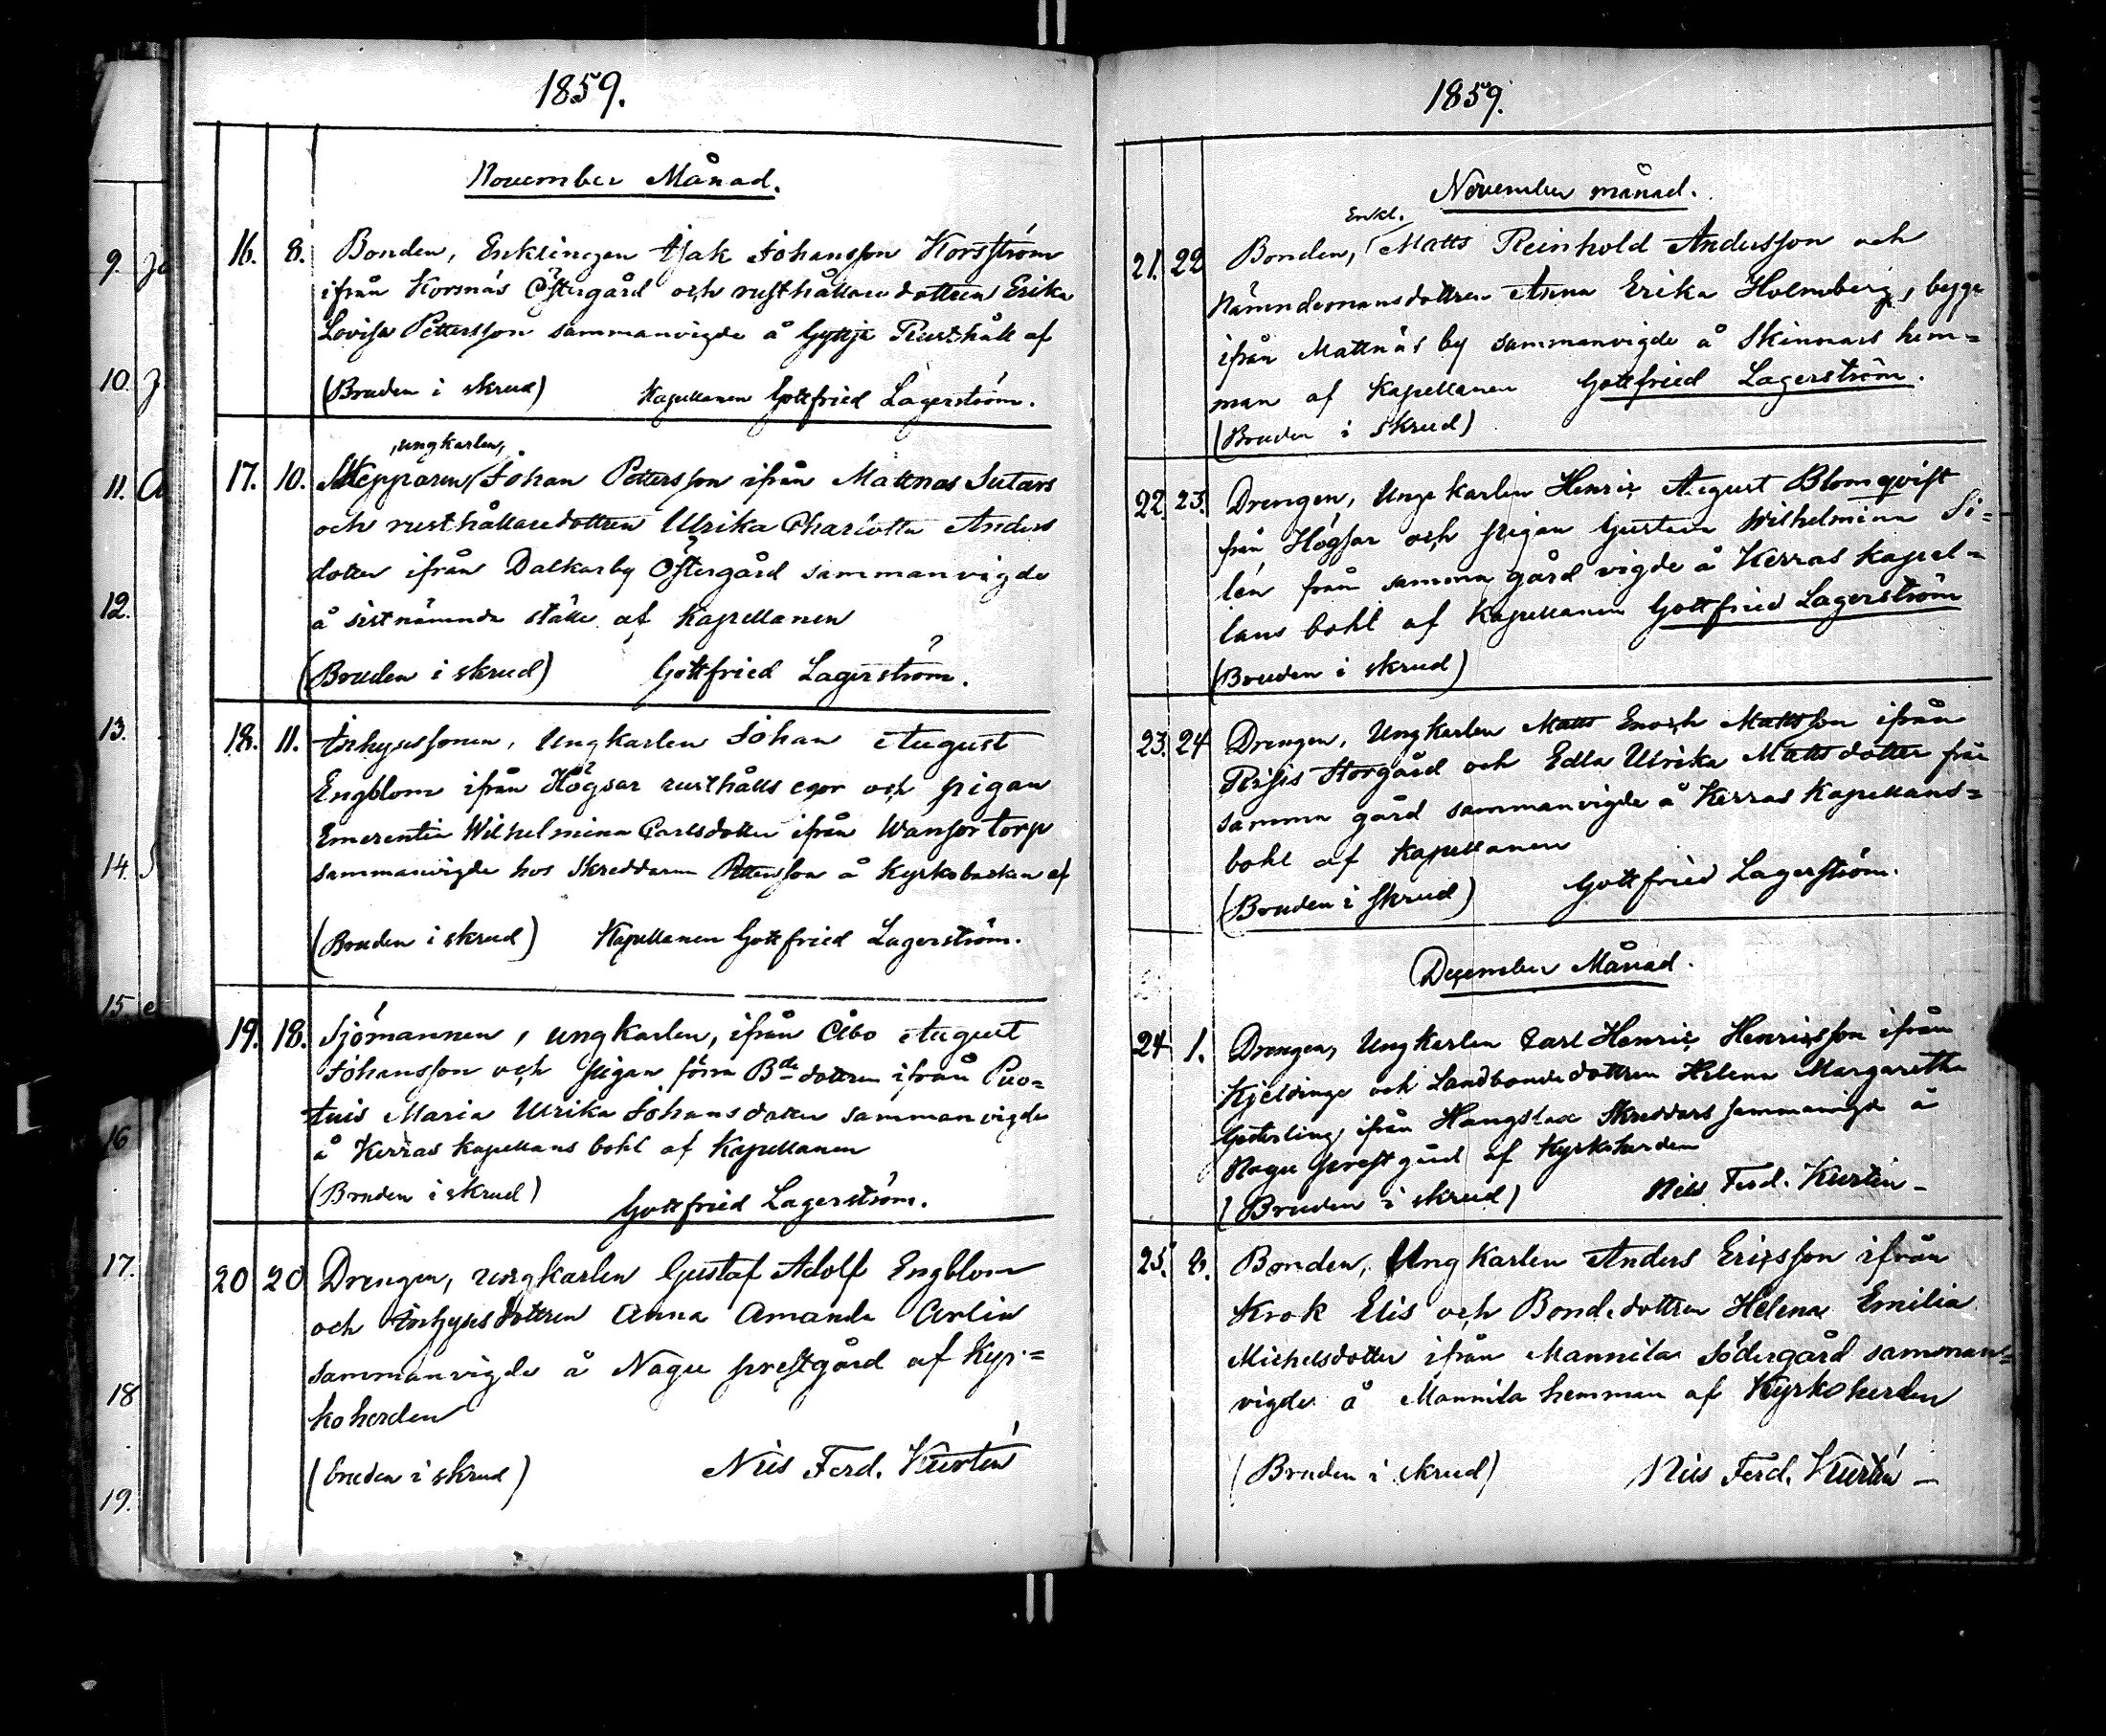 1859.
November Månad.
16. 8. Bonden, Enklingen Isak Johansson Korsström
ifrån Korsnäs Östergård och rusthållaredottren Erika
Lovisa Pettersson sammanvigde å Gyttja Rusthåll af
(Bruden i skrud) Kapellanen Gottfried Lagerström.
, ungkarlen,
17. 10. Skepparen, Johan Pettersson ifrån Mattnäs Sutars
och rusthållaredottren Ulrika Charlotta Anders
dotter ifrån Dalkarby Östergård sammanvigde
å sistnämnde ställe af Kapellanen
(Bruden i skrud) Gottfried Lagerström.
18. 11. Inhysessonen, Ungkarlen Johan August
Engblom ifrån Högsar rusthålls egor och pigan
Emerentia Wilhelmina Carlsdotter ifrån Wansortorp
sammanvigde hos Skreddaren Pettersson å Kyrkobacken af
(Bruden i skrud) Kapellanen Gottfried Lagerström.
19. 18. Sjömannen, ungkarlen, ifrån Åbo August
Johansson och pigan förra Bde dottren ifrån Puo=
tuis Maria Ulrika Johansdotter sammanvigde
å Kerras Kapellans bohl af Kapellanen
(Bruden i skrud) Gottfried Lagerström.
20 20 Drengen, ungkarlen Gustaf Adolf Engblom
och Inhysesdottren Anna Amanda Arlin
sammanvigde å Nagu prestgård af Kyr=
koherden
(bruden i skrud) Nils Ferd. Kurtén
1859.
November månad.
Enkl.
21. 22 Bonden, Matts Reinhold Andersson och
Nämndemansdottren Anna Erika Holmberg, begge
ifrån Mattnäs by sammanvigde å Skinnars hem=
man af Kapellanen Gottfried Lagerström.
(Bruden i skrud)
22. 23. Drengen, Ungkarlen Henric August Blomqvist
från Högsar och pigan Gustava Wilhelmina Si=
lén från samma gård vigde å Kerras Kapel=
lans bohl af Kapellanen Gottfried Lagerström
(Bruden i skrud)
23. 24 Drengen, Ungkarlen Matts Enoch Mattsson ifrån
Risis Storgård och Edla Ulrika Mattsdotter från
samma gård sammanvigde å Kerras Kapellans=
bohl af Kapellanen
(Bruden i skrud) Gottfried Lagerström.
December Månad.
24 1. Drengen, Ungkarlen Carl Henric Henricsson ifrån
Kjeldinge och Landbondedottren Helena Margaretha
Göderling, ifrån Hangslax Skreddars sammanvigde å
Nagu prestgård af Kyrkoherden
(Bruden i skrud) Nils Ferd. Kurtén –
25. 8. Bonden, Ungkarlen Anders Ericsson ifrån
Krok Elis och Bondedottren Helena Emilia
Michelsdotter ifrån Mannila Södergård samman=
vigde å Mannila hemman af Kyrkoherden
(Bruden i skrud) Nils Ferd. Kurtén –
9.
10.
11.
12.
13.
14.
15.
16
17.
18
19.